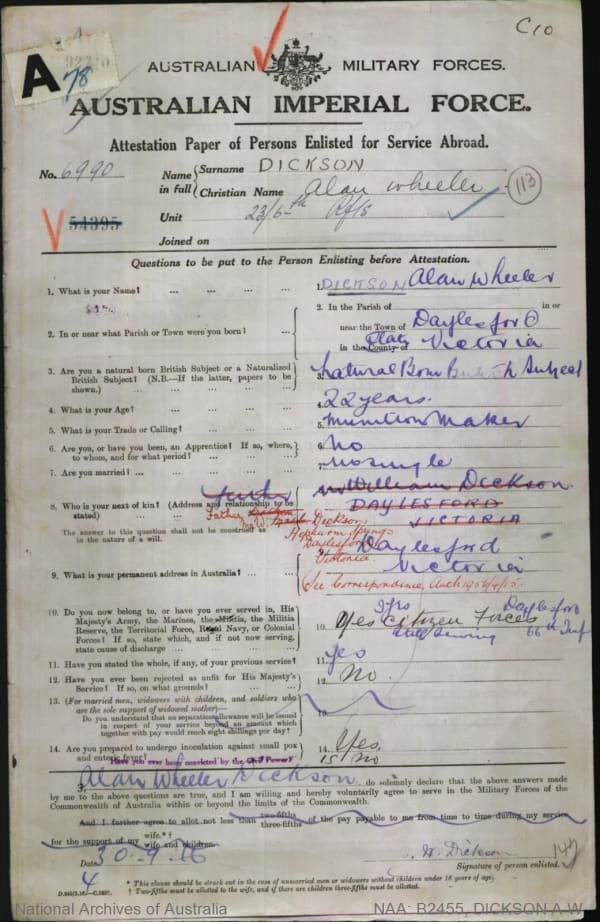 C10
A
78
AUSTRALIAN MILITARY FORCES.
AUSTRALIAN IMPERIAL FORCE.
Attestation Paper of Persons Enlisted for Service Abroad.
No. 6990 Name in full Surname DICKSON
Christian Name Alan Wheeler
113
54395 Unit 23/6th Rfts
Joined on
Questions to be put to the Person Enlisting before Attestation.
1. What is your Name? ... ... ... ... 1. DICKSON Alan Wheeler
2. In or near what Parish or Town were you born? ... 2. In the Parish of in or
near the Town of Daylesford
in the County of State Victoria
3. Are you a natural born British Subject or a Naturalized British Subject? (N.B.—If the latter, papers to be shown.) 3. Natural Born British Subject
4. What is your Age? 4. 22 years.
5. What is your Trade or Calling? 5. Munition Maker
6. Are you, or have you been, an Apprentice? If so, where, to whom, and for what period? 6. No
7. Are you married? 7. No single
8. Who is your next of kin? (Address and relationship to be stated) William Dickson
DAYLESFORD
VICTORIA
Father
Father
Mr W. Dickson
Hepburn Springs
Daylesford
Victoria
The answer to this question shall not be construed as in the nature of a will.
9. What is your permanent address in Australia? 9. Daylesford
Victoria
See Correspondence,
10. Do you now belong to, or have you ever served in, His Majesty's Army, the Marines, the Militia, the Militia Reserve, the Territorial Force, Royal Navy, or Colonial Forces? If so, state which, and if not now serving, state cause of discharge 10. Yes Citizen Forces Daylesford
still serving 66th Inf
11. Have you stated the whole, if any, of your previous service? 11. yes
12. Have you ever been rejected as unfit for His Majesty's Service? If so, on what grounds? 12. No.
13. (For married men, widowers with children, and soldiers who are the sole support of widowed mother)—
Do you understand that no separation allowance will be issued in respect of your service beyond an amount which together with pay would reach eight shillings per day? 13.
14. Are you prepared to undergo inoculation against small pox and enteric fever? 14. Yes.
Have you ever been convicted by the Civil Power? 15 No
I, Alan Wheeler Dickson do solemnly declare that the above answers made
by me to the above questions are true, and I am willing and hereby voluntarily agree to serve in the Military Forces of the
Commonwealth of Australia within or beyond the limits of the Commonwealth.
And I further agree to allot not less than two-fifths three-fifths of the pay payable to me from time to time during my service
for the support of my wife.*†
wife and children.
Date 30.9.16
W. Dickson
Signature of person enlisted.
4
* This clause should be struck out in the case of unmarried men or widowers without children under 18 years of age.
† Two-fifths must be allotted to the wife, and if there are children three-fifths must be allotted.
National Archives of Australia NAA: B2455, DICKSON A W